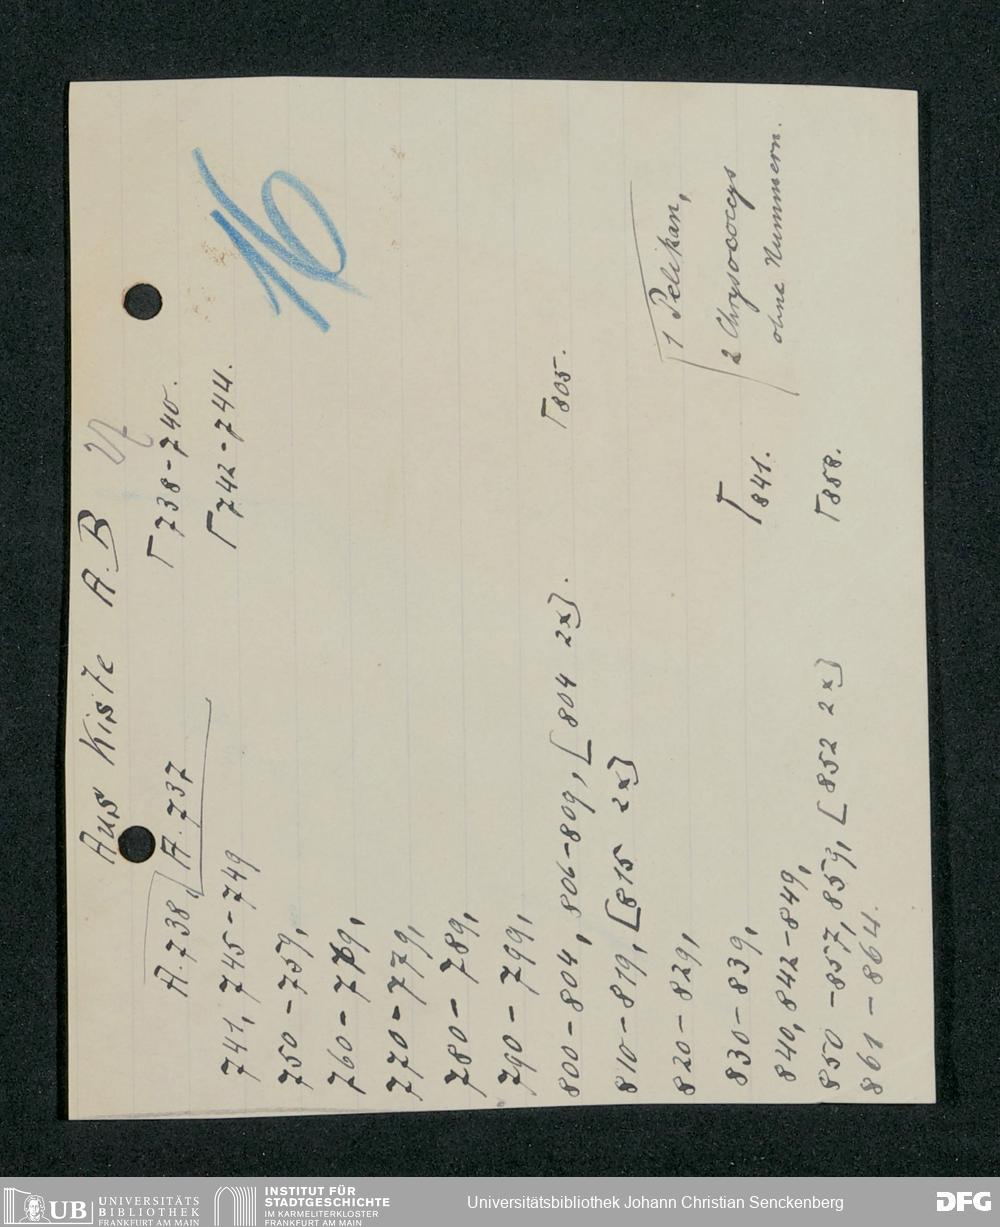 Aus Kiste A.B
16
A.738, A.737
Γ 738-740.
741, 745-749
Γ 742-744.
750-759,
760-769,
770-779,
780-789,
790-799,
800-804, 806-809, [804 2x].
Γ 805.
810-819, [815 2x]
820-829,
1 Pelikan,
830-839,
2 Chrysococcys
ohne Nummern.
840, 842-849,
Γ 841.
850-857, 859, [852 2x]
Γ 858.
861-864.
UB UNIVERSITÄTS
BIBLIOTHEK
FRANKFURT AM MAIN
INSTITUT FÜR
STADTGESCHICHTE
IM KARMELITERKLOSTER
FRANKFURT AM MAIN
Universitätsbibliothek Johann Christian Senckenberg
DFG